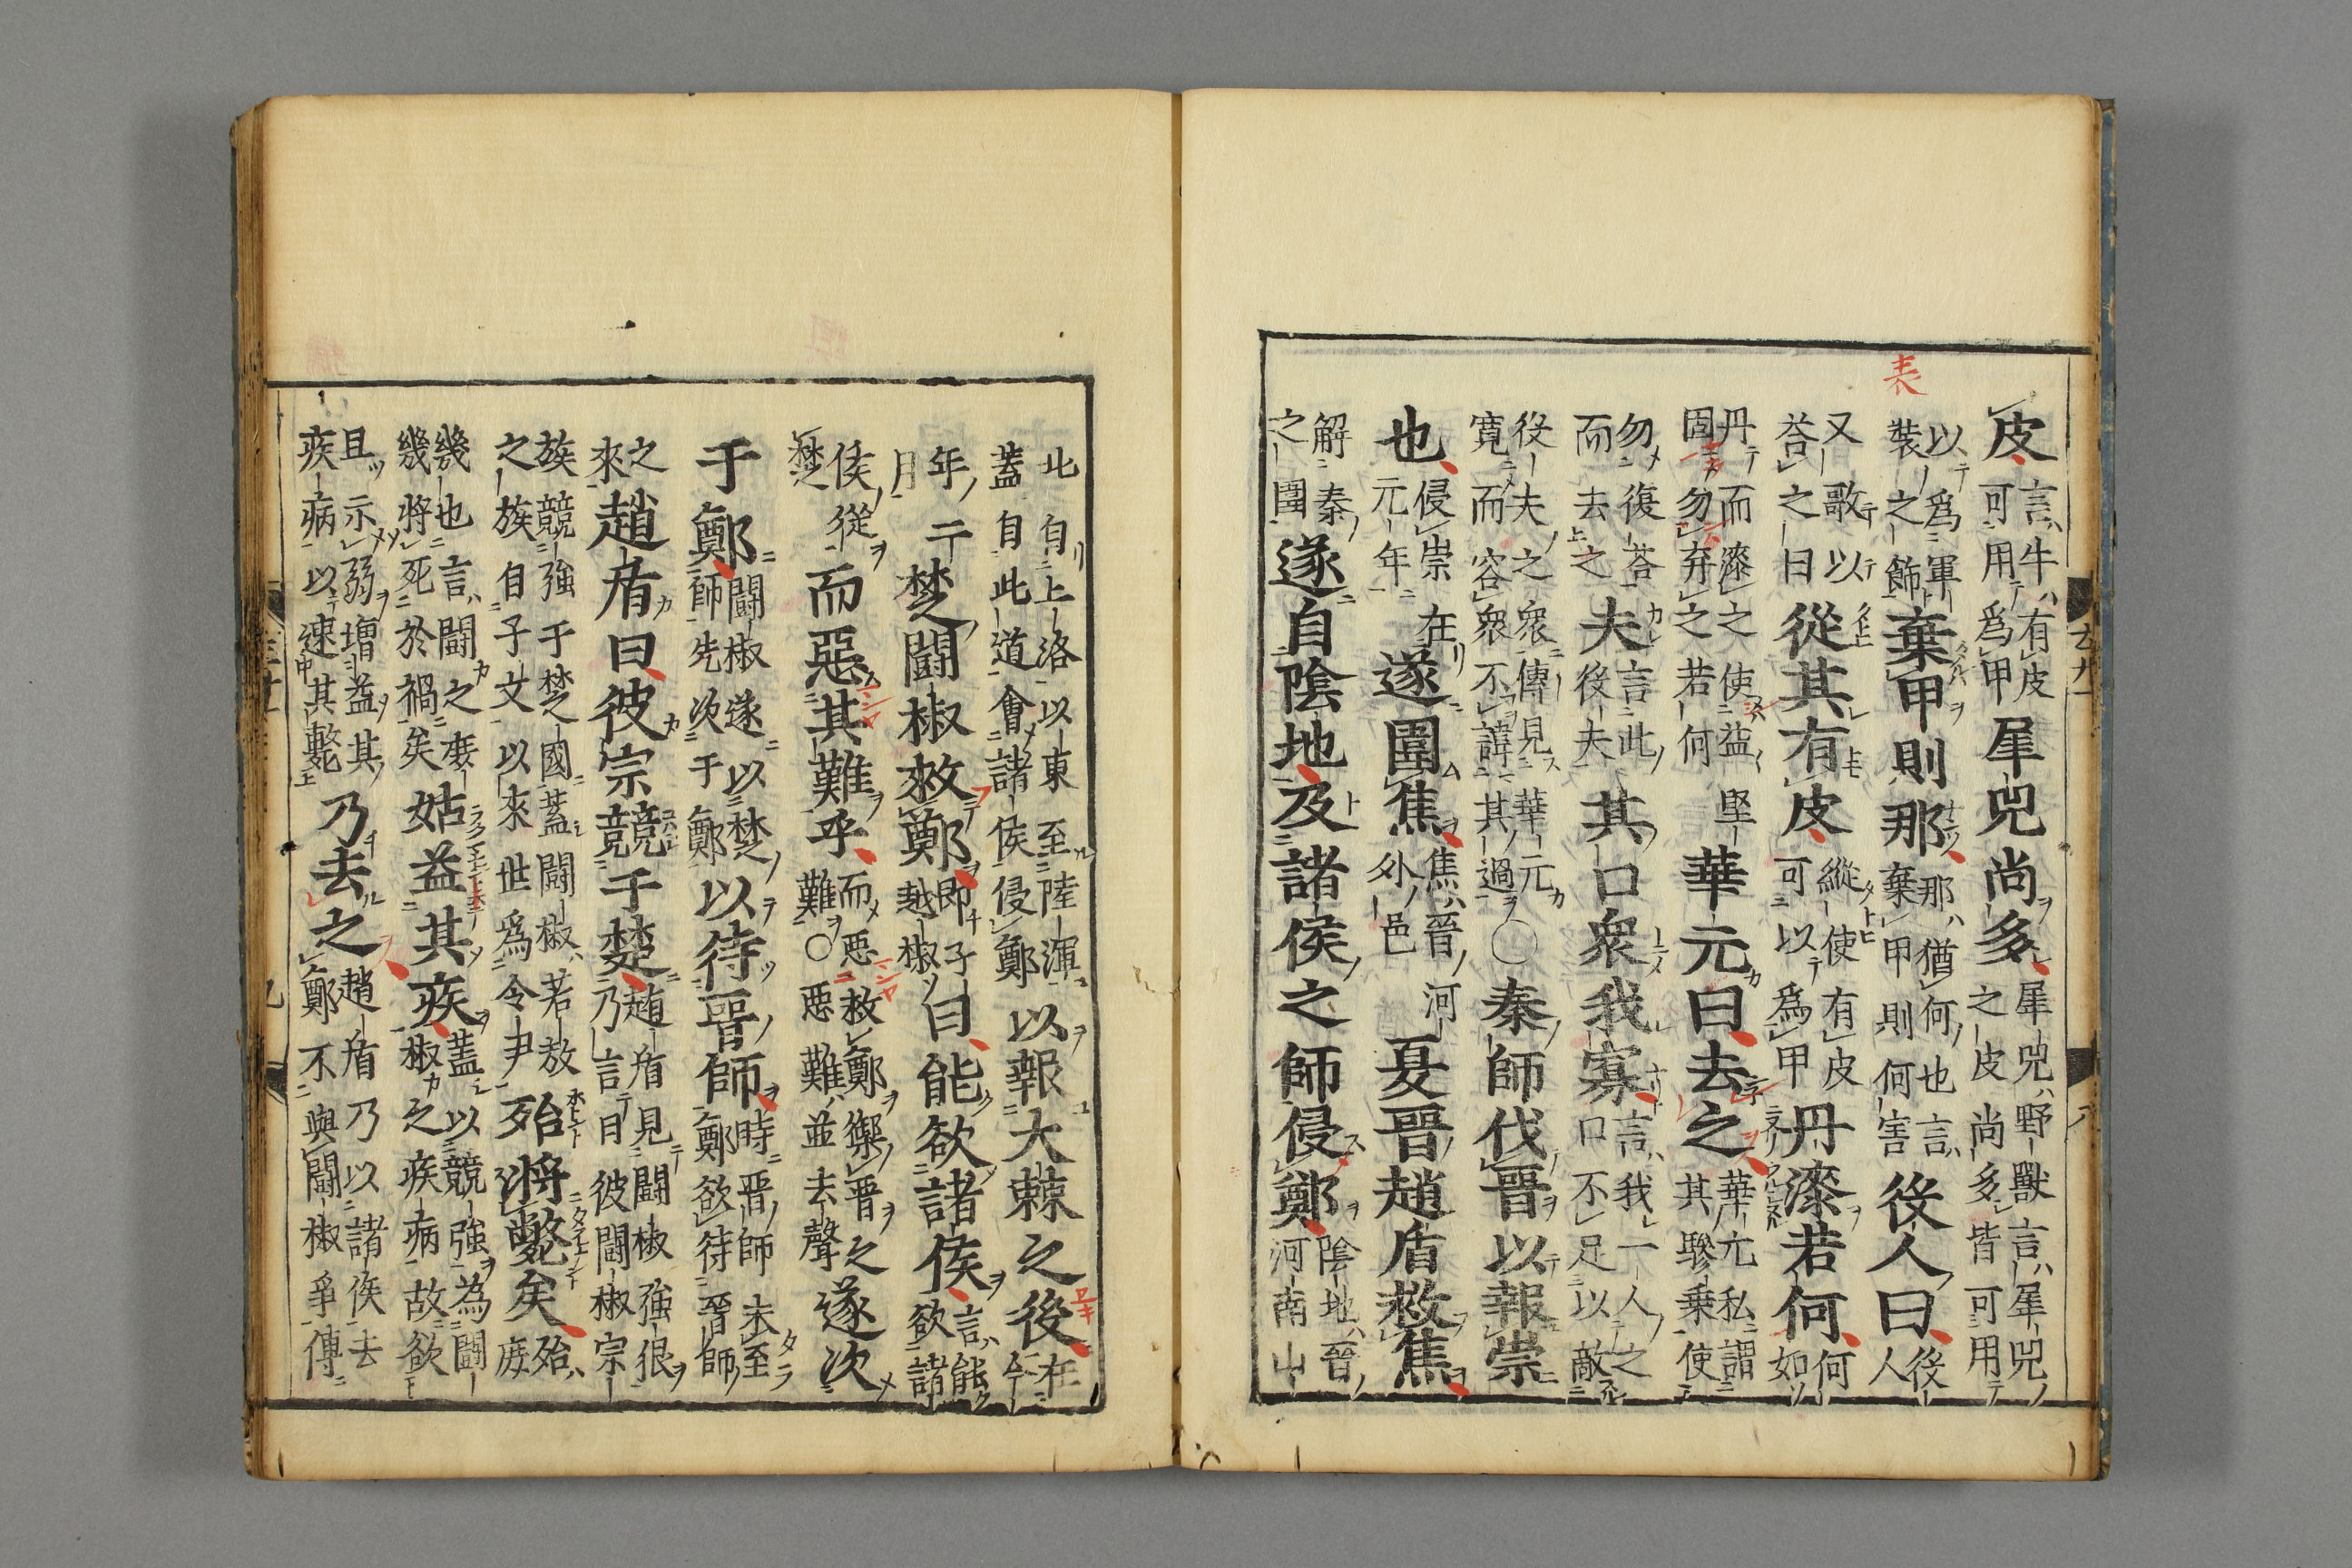 皮言牛有皮可用爲甲犀兕尚多犀兕野獸言犀兕之皮尚多皆可用
以爲軍裝之飾棄甲則那那猶何也言棄甲則何害役人曰役人
又歌以荅之曰從其有皮縱使有皮可以爲甲丹漆若何何如
丹而漆之使益堅固勿弃之若何華元曰去之華元私謂其驂乗使
勿復荅而去之夫言此役夫其口衆我寡言我一人之口不足以敵
役夫之衆傳見華元寛而容衆不諱其過〇秦師伐晉以報崇
也侵崇在元年遂圍焦焦晉河外邑夏晉趙盾救焦
解秦之圍遂自陰地及諸侯之師侵鄭陰地晉河南山
北自上洛以東至陸渾蓋自此道會諸侯侵鄭以報大棘之後在今
年二月楚鬪椒救鄭即子越椒曰能欲諸侯言能欲諸
侯從楚而惡其難乎而惡救鄭禦晉之難〇惡難並去聲遂次
于鄭鬪椒遂以楚師先次于鄭以待晉師時晉師未至鄭欲待晉師
之來趙盾曰彼宗競于楚趙盾見鬪椒強很乃言曰彼鬪椒宗
族競強于楚國蓋鬪椒若敖之族自子文以來世爲令尹殆將斃矣殆庻
幾也言鬪之庻幾將死於禍矣姑益其疾蓋以競強為鬪椒之疾病故欲
且示弱増益其疾病以速其斃乃去之趙盾乃以諸侯去鄭不與鬪椒爭傳
表